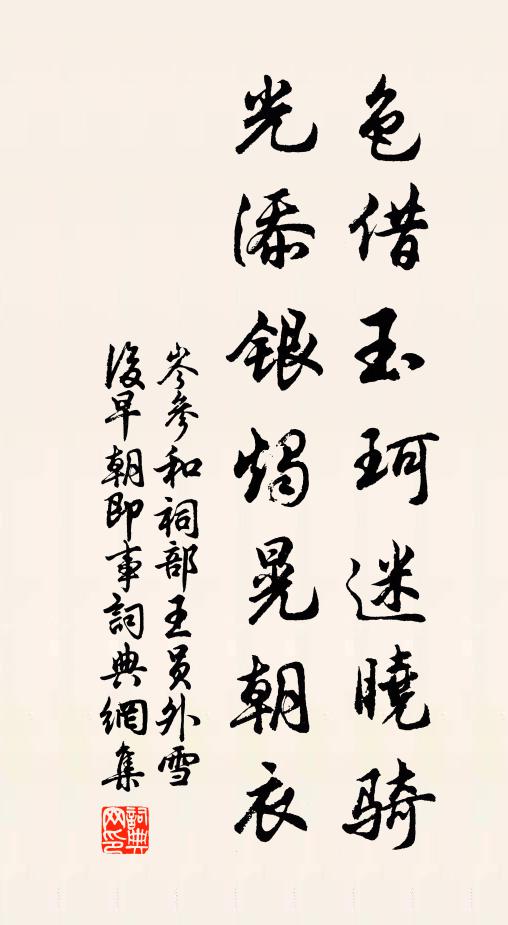 色借玉珂迷曉騎
光添銀燭晃朝衣
岑參和祠部王員外雪
後早朝即事詞典網集
詞典網印